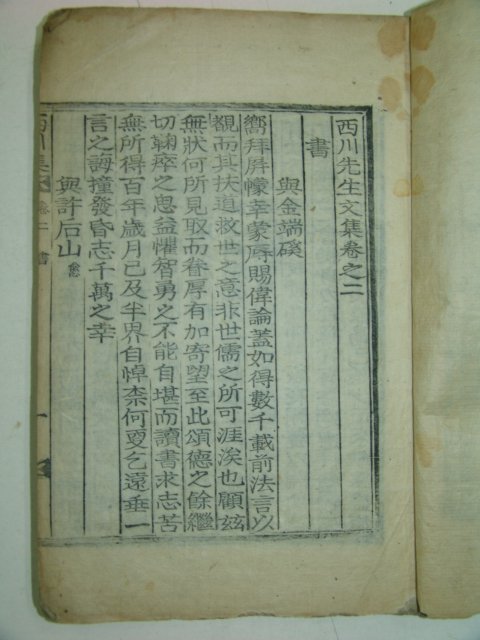 西川先生文集卷之二
書
與金端磎
嚮拜屛幪幸蒙辱賜偉論蓋如得數千載前法言以
覩而其扶道救世之意非世儒之所可涯涘也顧玆
無狀何所見取而眷厚有加寄望至此頌德之餘繼
切鞠瘁之思益懼智勇之不能自堪而讀書求志苦
無所得百年歲月已及半界自悼柰何更乞遠垂一
言之誨撞發昏志千萬之幸
與許石山
西川集 卷二 書 一